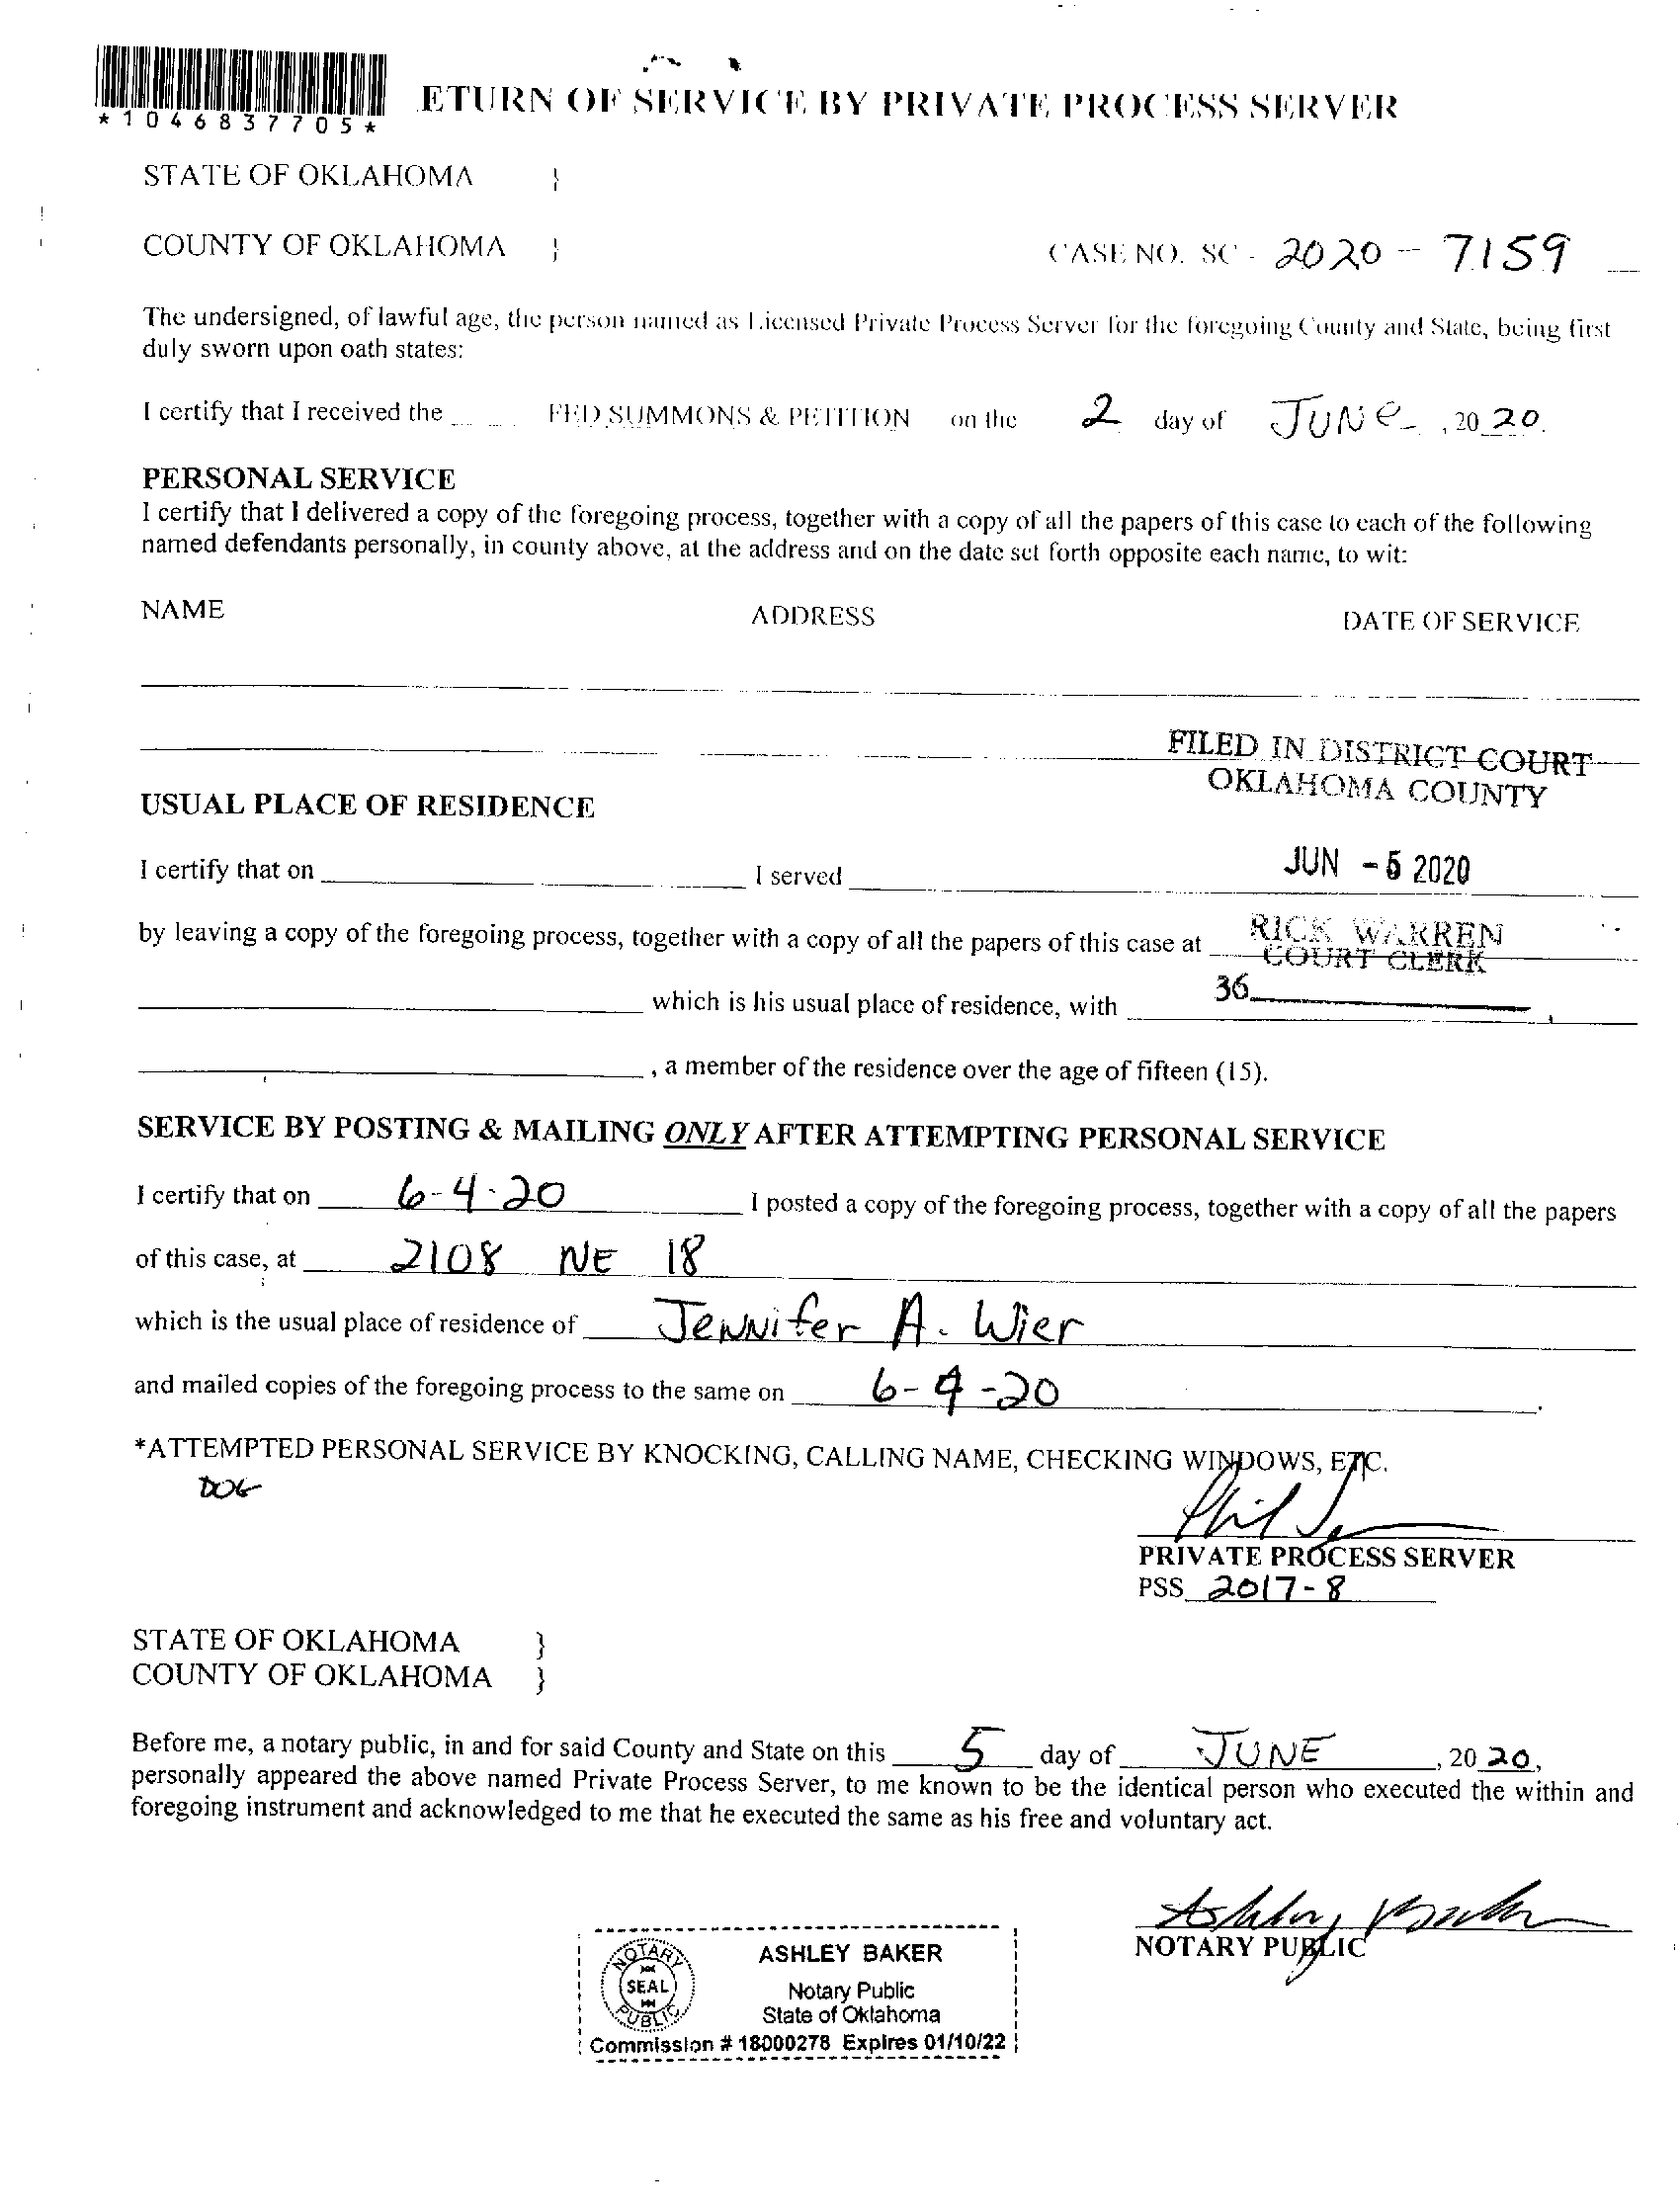 *1046837705*
ETURN OF SERVICE BY PRIVATE PROCESS SERVER
STATE OF OKLAHOMA }
COUNTY OF OKLAHOMA }
CASE NO. SC - 2020 - 7159
The undersigned, of lawful age, the person named as Licensed Private Process Server for the foregoing County and State, being first
duly sworn upon oath states:
I certify that I received the FED SUMMONS & PETITION on the 2 day of JUNE, 2020.
PERSONAL SERVICE
I certify that I delivered a copy of the foregoing process, together with a copy of all the papers of this case to each of the following
named defendants personally, in county above, at the address and on the date set forth opposite each name, to wit:
NAME ADDRESS DATE OF SERVICE
FILED IN DISTRICT COURT
OKLAHOMA COUNTY
USUAL PLACE OF RESIDENCE
JUN - 5 2020
I certify that on I served
RICK WARREN
COURT CLERK
by leaving a copy of the foregoing process, together with a copy of all the papers of this case at
36
which is his usual place of residence, with ,
, a member of the residence over the age of fifteen (15).
SERVICE BY POSTING & MAILING ONLY AFTER ATTEMPTING PERSONAL SERVICE
I certify that on 6-4-20 I posted a copy of the foregoing process, together with a copy of all the papers
of this case, at 2108 NE 18
which is the usual place of residence of Jennifer A. Wier
and mailed copies of the foregoing process to the same on 6-4-20.
*ATTEMPTED PERSONAL SERVICE BY KNOCKING, CALLING NAME, CHECKING WINDOWS, ETC.
DOG
PRIVATE PROCESS SERVER
PSS 2017-8
STATE OF OKLAHOMA }
COUNTY OF OKLAHOMA }
Before me, a notary public, in and for said County and State on this 5 day of JUNE, 2020,
personally appeared the above named Private Process Server, to me known to be the identical person who executed the within and
foregoing instrument and acknowledged to me that he executed the same as his free and voluntary act.
Ashley Baker
NOTARY PUBLIC
NOTARY
SEAL
PUBLIC
ASHLEY BAKER
Notary Public
State of Oklahoma
Commission # 18000278 Expires 01/10/22